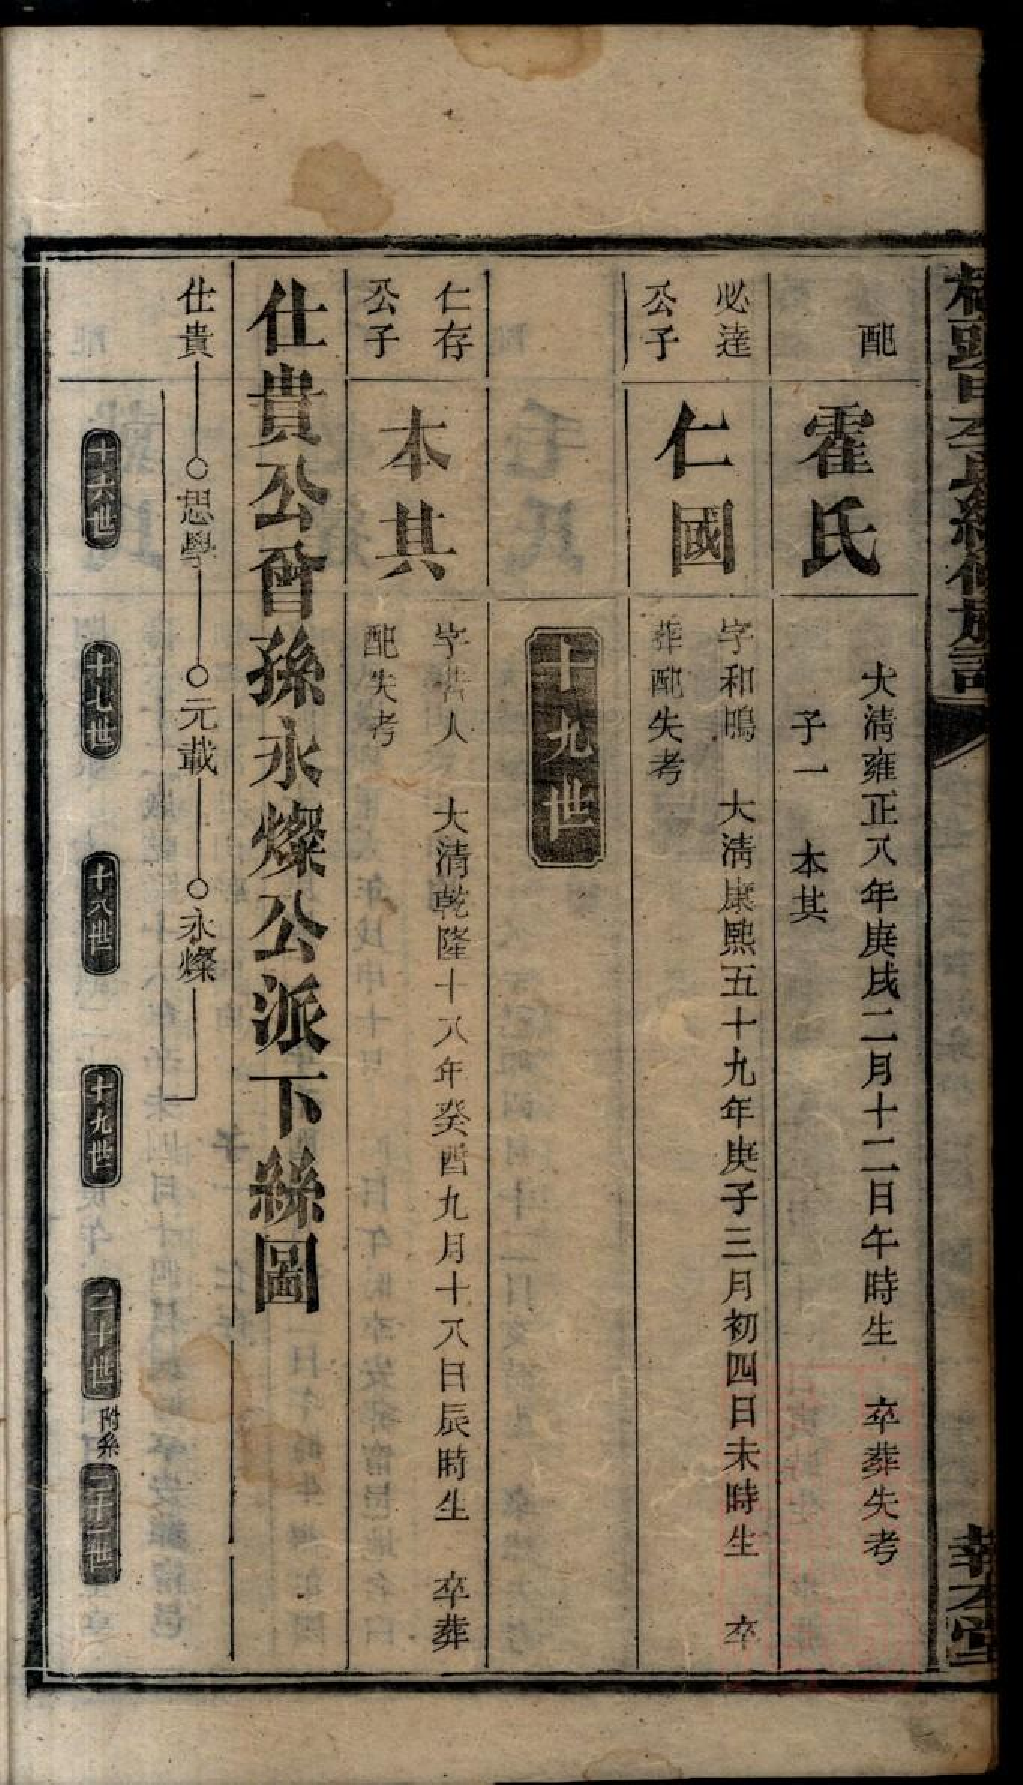 配
霍氏
大清雍正八年庚戌二月十二日午時生 卒葬失考
子一 本其
必達
公子
仁國
字和鳴 大清康熙五十九年庚子三月初四日未時生 卒
葬配失考
十九世
仁存
公子
本其
人 大清乾隆十八年癸酉九月十八日辰時生 卒葬
配失考
仕貴公曾孫永燦公派下絲圖
仕貴
思學
元載
永燦
十六世
十七世
十八世
十九世
二十世
附系
二十一世
報本堂